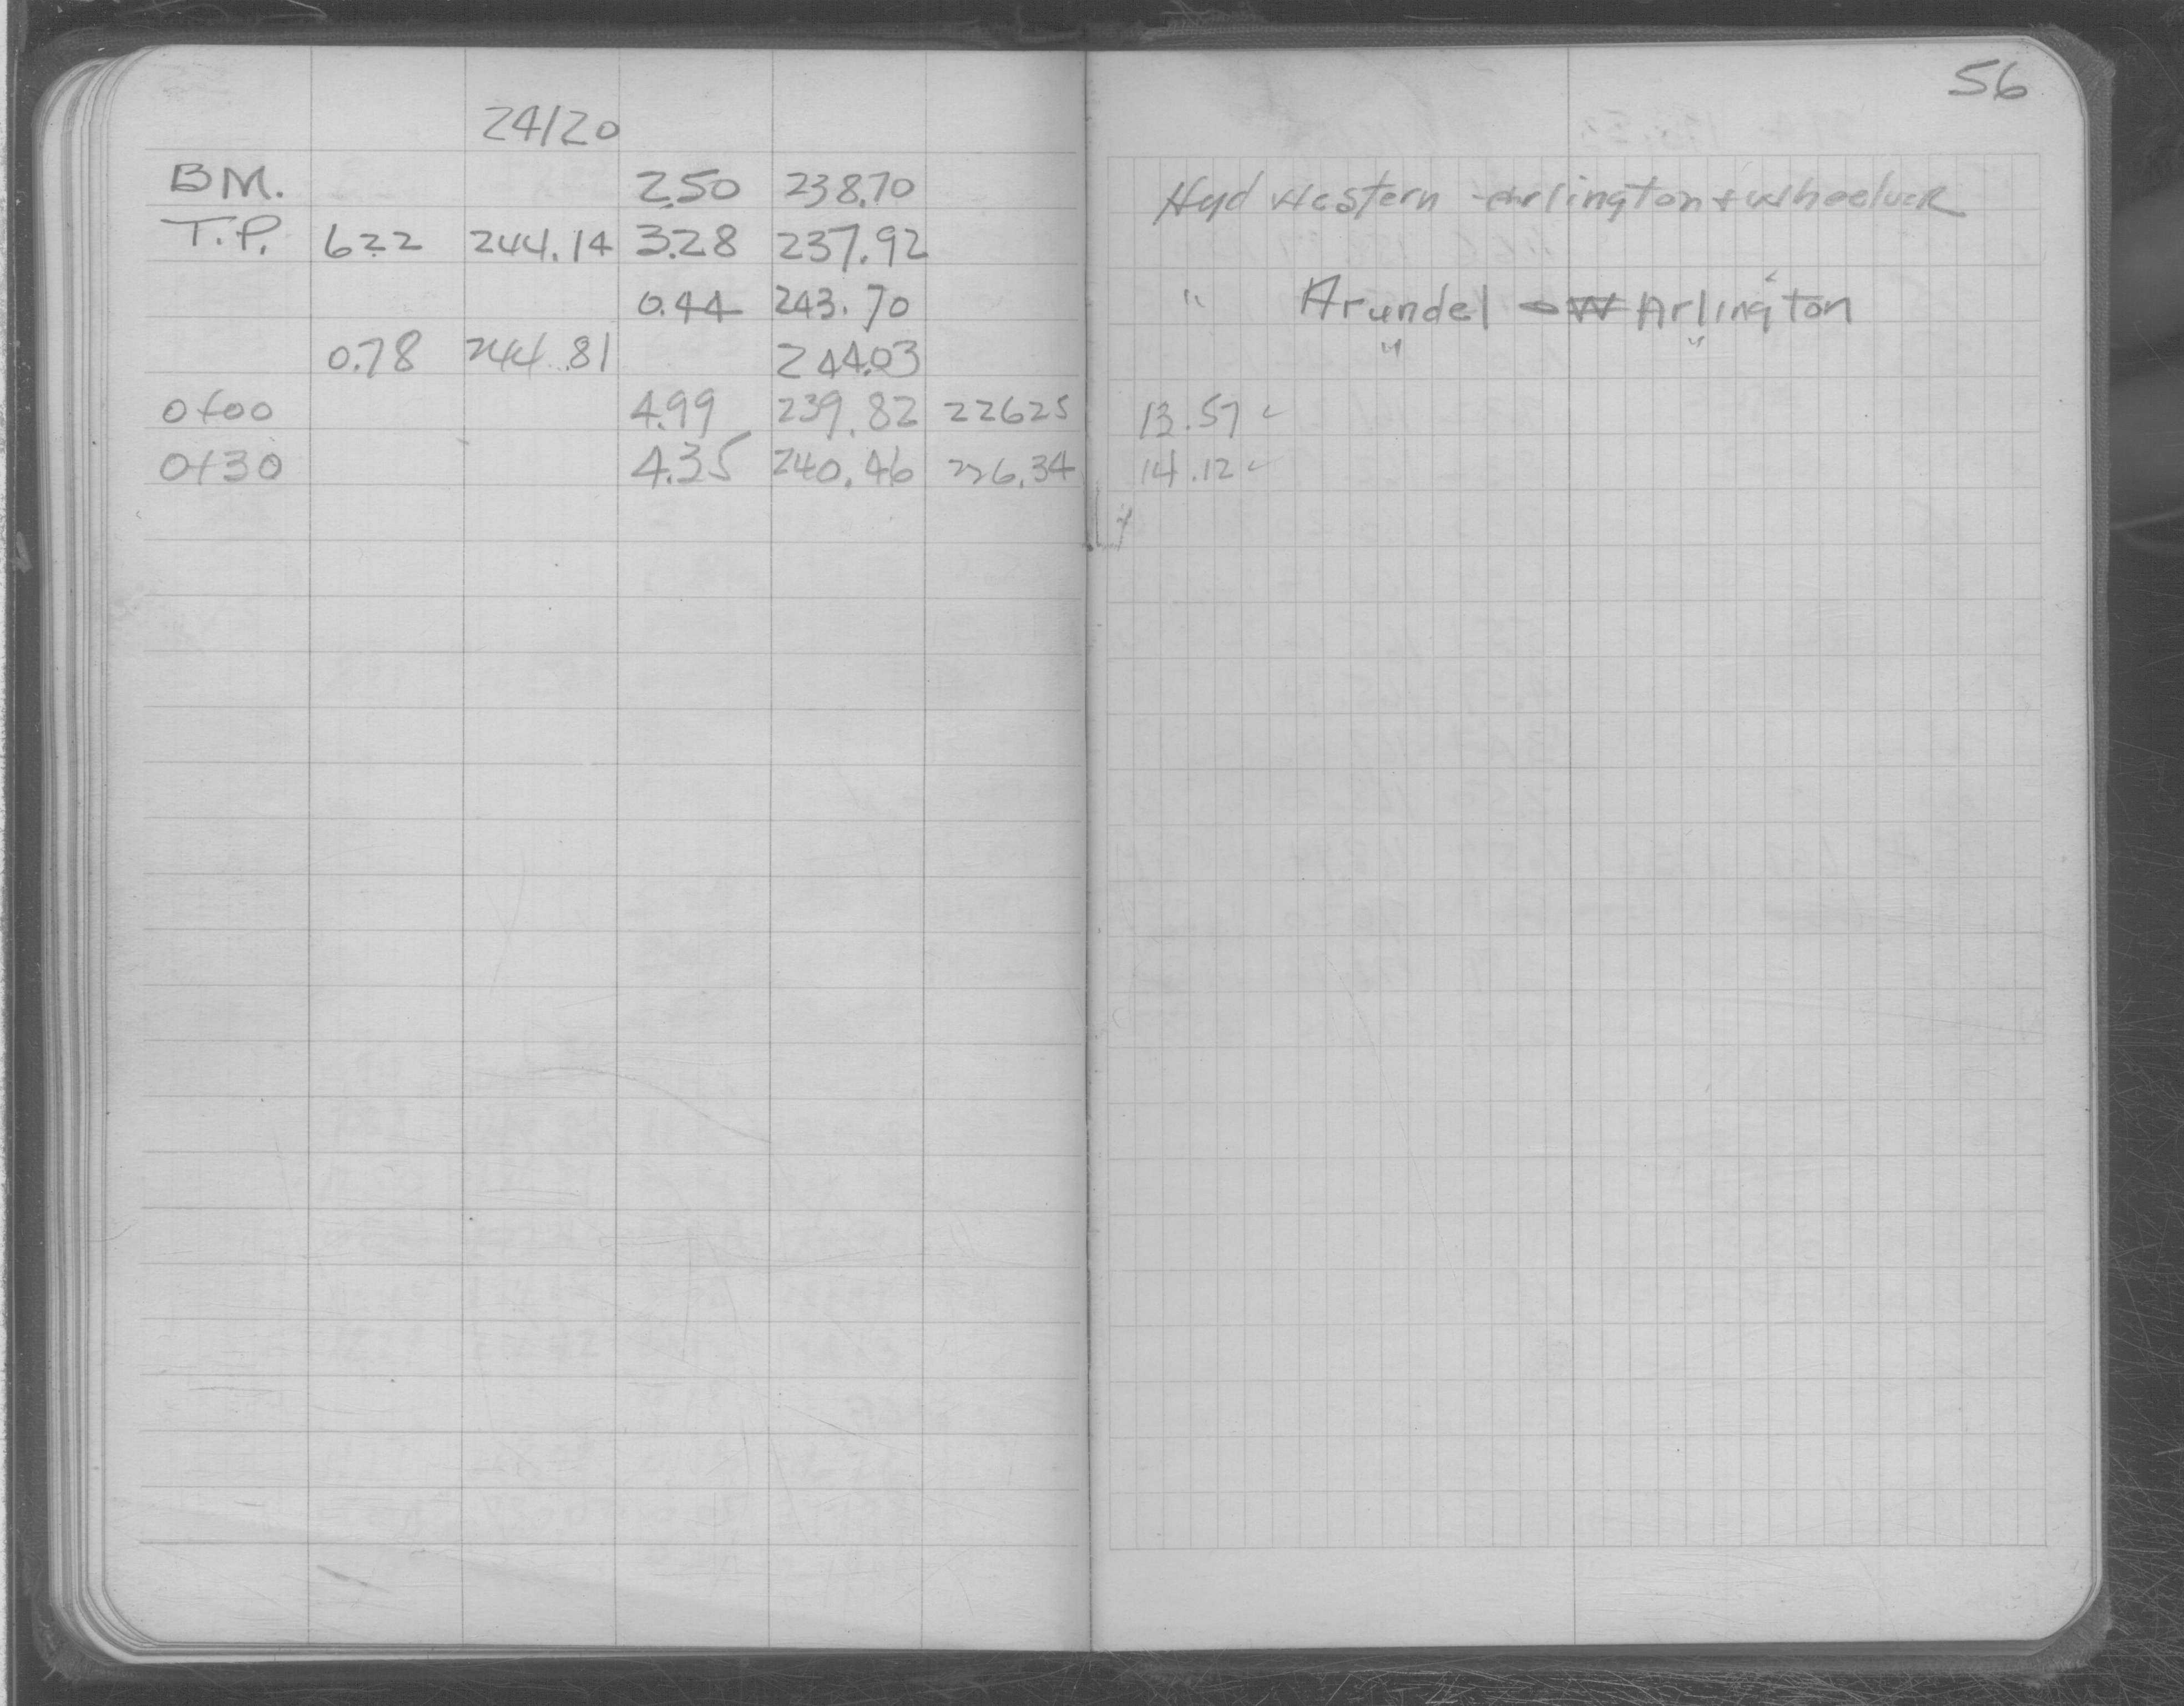 56
24120
BM. 2.50 238.70 Hyd Western Arlington & Wheelock
T.P. 622 244.14 3.28 237.92
0.44 243.70 " Arundel Arlington
0.78 244.81 244.03 " "
0+00 4.99 239.82 22625 13.57 ✓
0+30 4.35 240.46 226.34 14.12 ✓